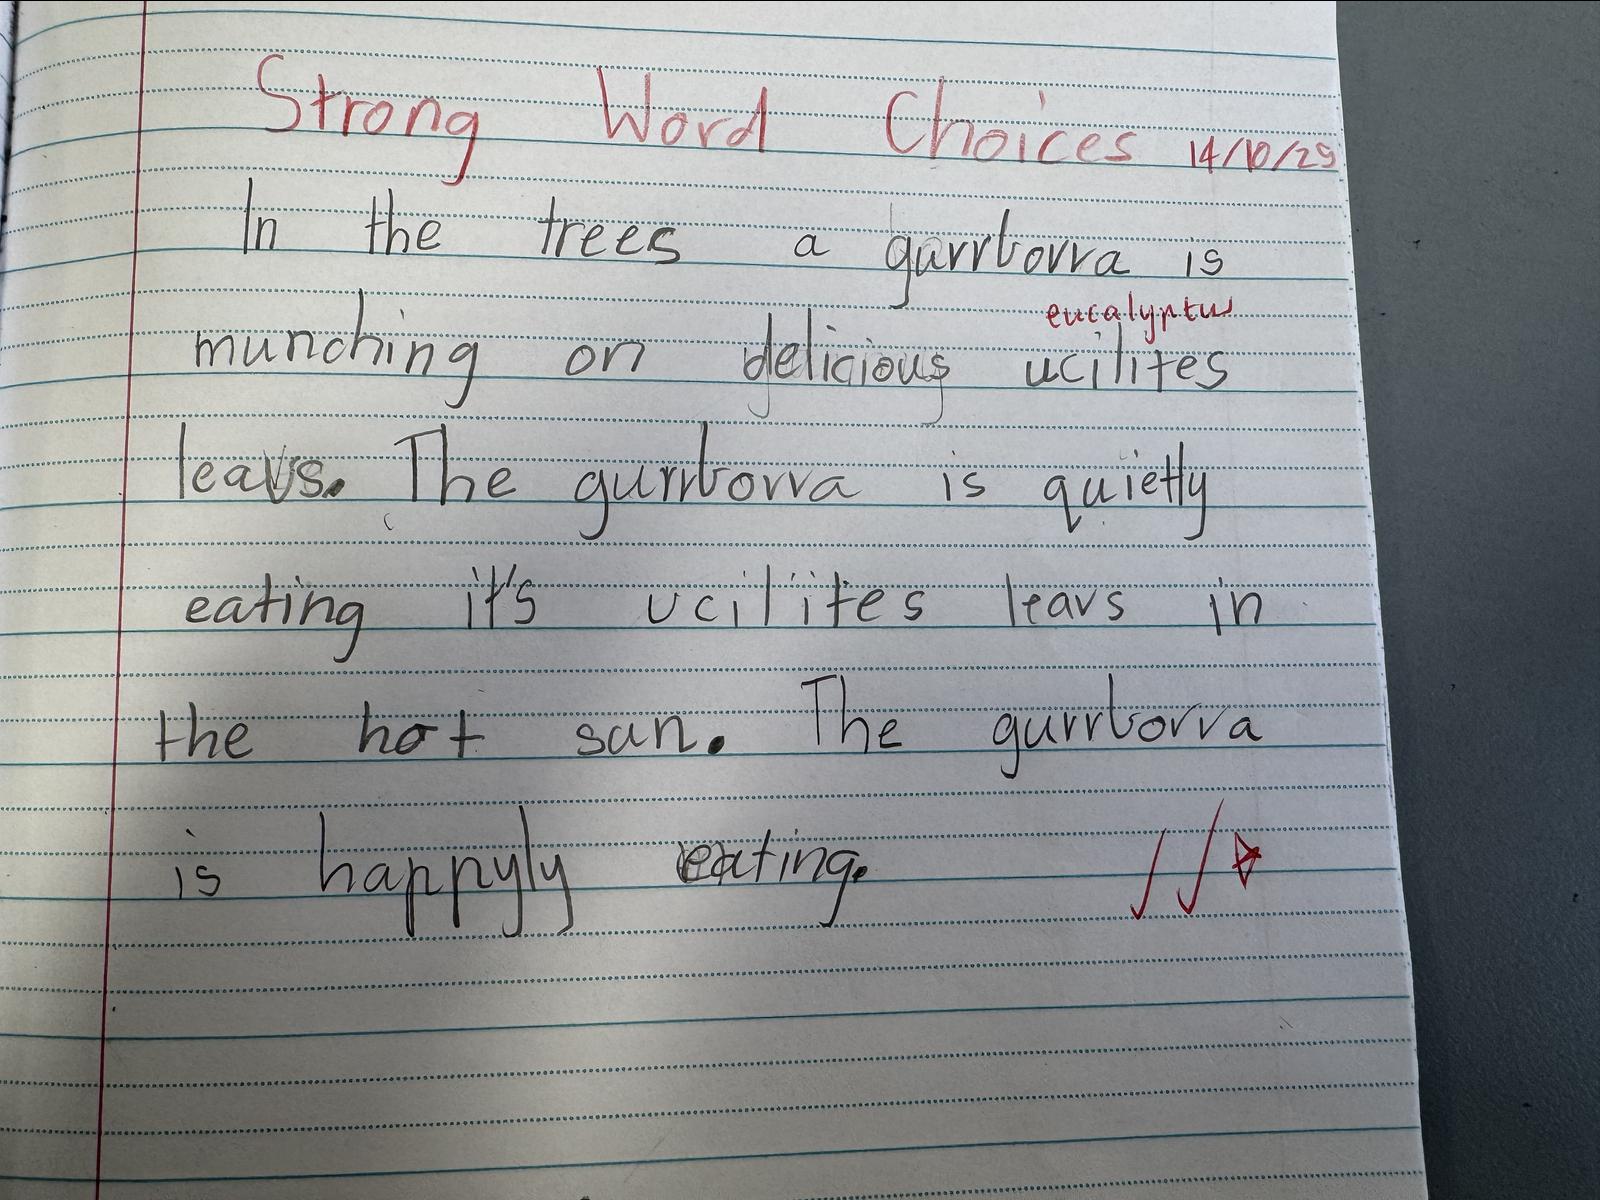 Strong Word Choices 14/10/25
In the trees a gurrborra is
eucalyptus
munching on delicious ucilites
leavs. The gurrborra is quietly
eating it's ucilites leavs in
the hot sun. The gurrborra
is happyly eating.